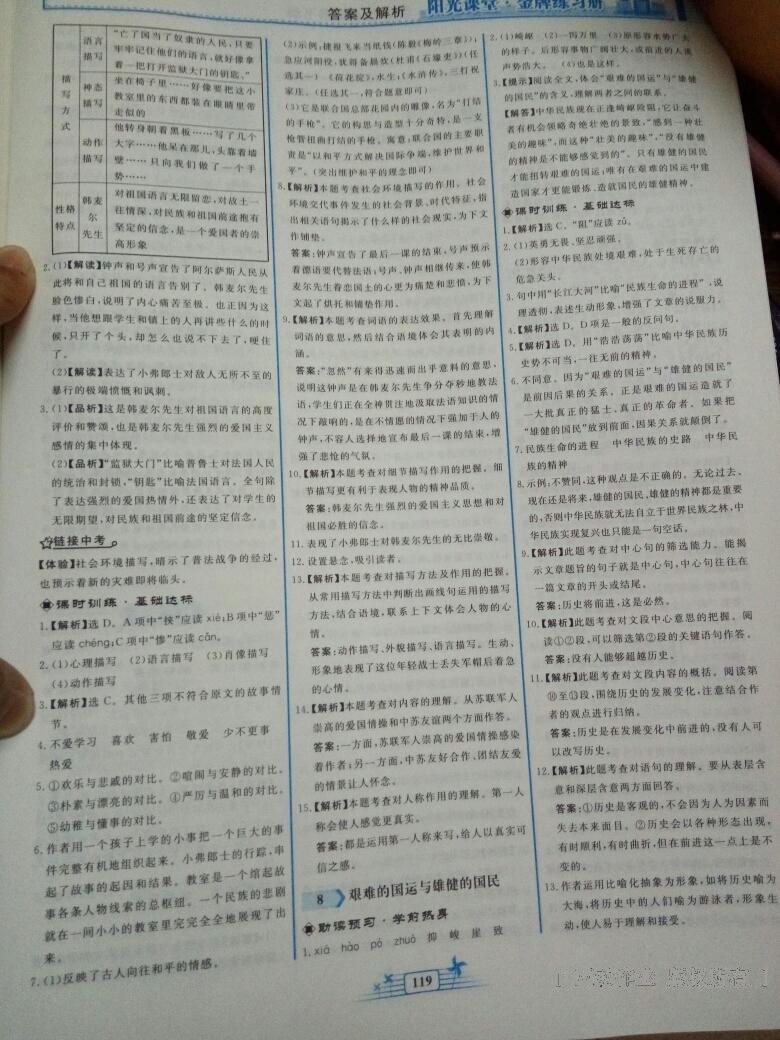 答案及解析
阳光课堂·金牌练习册
描写方式
语言描写
“亡了国当了奴隶的人民,只要
牢牢记住他们的语言,就好像拿
着一把打开监狱大门的钥匙。”
神态描写
坐在椅子里……好像要把这小
教室里的东西都装在眼睛里带
走似的
动作描写
他转身朝着黑板……写了几个
大字……他呆在那儿,头靠着墙
壁……只向我们做了一个手
势……
性格特点
韩麦尔先生
对祖国语言无限留恋,对故土一
往情深,对民族和祖国前途抱有
坚定的信念,是一个爱国者的崇
高形象
2.(1)【解读】钟声和号声宣告了阿尔萨斯人民从
此将和自己祖国的语言告别了。韩麦尔先生
脸色惨白,说明了内心痛苦至极。也正因为这
样,当他想跟学生和镇上的人再讲些什么的时
候,只开了个头,却怎么也说不下去了,哽住
了。
(2)【解读】表达了小弗郎士对敌人无所不至的
暴行的极端愤慨和讽刺。
3.(1)【品析】这是韩麦尔先生对祖国语言的高度
评价和赞颂,也是韩麦尔先生强烈的爱国主义
感情的集中体现。
(2)【品析】“监狱大门”比喻普鲁士对法国人民
的统治和封锁,“钥匙”比喻法国语言。全句除
了表达强烈的爱国热情外,还表达了对学生的
无限期望,对民族和祖国前途的坚定信念。
链接中考
【体验】社会环境描写,暗示了普法战争的经过,
也预示着新的灾难即将临头。
课时训练·基础达标
1.【解析】选D。A项中“挟”应读xié;B项中“惩”
应读chéng;C项中“惨”应读cǎn。
2.(1)心理描写 (2)语言描写 (3)肖像描写
(4)动作描写
3.【解析】选C。其他三项不符合原文的故事情
节。
4.不爱学习 喜欢 害怕 敬爱 少不更事
热爱
5.①欢乐与悲戚的对比。②喧闹与安静的对比。
③朴素与漂亮的对比。④严厉与温和的对比。
⑤幼稚与懂事的对比。
6.作者用一个孩子上学的小事把一个巨大的事
件完整有机地组织起来。小弗郎士的行踪,串
起了故事的起因和结果。教室是一个绾起故
事各条人物线索的总枢纽。一个民族的悲剧
就在一间小小的教室里完完全全地展现了出
来。
7.(1)反映了古人向往和平的情感。
(2)示例:捷报飞来当纸钱(陈毅《梅岭三章》);
急应河阳役,犹得备晨炊(杜甫《石壕吏》)(任
选其一) 《荷花淀》,水生;《水浒传》,三打祝
家庄。(任选其一,符合题意即可)
(3)它是联合国总部花园内的雕像,名为“打结
的手枪”。它的构思与造型十分奇特,是一支
枪管扭曲打结的手枪。寓意:联合国的主要职
责是“以和平方式解决国际争端,维护世界和
平”。(突出维护和平的理念即可)
8.【解析】本题考查社会环境描写的作用。社会
环境交代事件发生的社会背景、时代特征,指
出相关语句揭示了什么样的社会现实,为下文
作铺垫。
答案:钟声宣告了最后一课的结束,号声预示
着德语要代替法语;号声、钟声相继传来,使韩
麦尔先生眷恋国土的心更为痛楚和悲愤,为下
文起了烘托和铺垫作用。
9.【解析】本题考查词语的表达效果。首先理解
词语的意思,然后结合语境体会其表明的内
涵。
答案:“忽然”有来得迅速而出乎意料的意思,
说明这钟声是在韩麦尔先生争分夺秒地教法
语,学生们正在全神贯注地汲取法语知识的情
况下敲响的,是在不情愿的情况下强加于人的
钟声,不容人选择地宣布最后一课的结束,增
强了悲怆的气氛。
10.【解析】本题考查对细节描写作用的把握。细
节描写更有利于表现人物的精神品质。
答案:韩麦尔先生强烈的爱国主义思想和对
祖国必胜的信念。
11.表现了小弗郎士对韩麦尔先生的无比崇敬。
12.设置悬念,吸引读者。
13.【解析】本题考查对描写方法及作用的把握。
从常用描写方法中判断出画线句运用的描写
方法,结合语境,联系上下文体会人物的心
情。
答案:动作描写、外貌描写、语言描写。生动、
形象地表现了这位年轻战士丢失军帽后着急
的心情。
14.【解析】本题考查对内容的理解。从苏联军人
崇高的爱国情操和中苏友谊两个方面作答。
答案:一方面,苏联军人崇高的爱国情操感染
着作者;另一方面,中苏友好合作、团结友爱
的情景让人怀念。
15.【解析】本题考查对人称作用的理解。第一人
称会使人感觉更真实。
答案:都是运用第一人称来写,给人以真实可
信之感。
8 艰难的国运与雄健的国民
助读预习·学前热身
1.xiá hào pó zhuó 抑 峻 崖 致
2.(1)崎岖 (2)一泻万里 (3)原形容水势广大
的样子。后形容事物广阔壮大,或前进的人流
声势浩大。 (4)也是这样。
3.【提示】阅读全文,体会“艰难的国运”与“雄健
的国民”的含义,理解两者之间的联系。
【解答】中华民族现在正逢崎岖险阻,它让奋斗
者有机会领略奇绝壮绝的景致,“感到一种壮
美的趣味”,而这种“壮美的趣味”,“没有雄健
的精神是不能够感觉到的”。只有雄健的国民
才能扭转艰难的国运,唯有在艰难的国运中建
造国家才更能锻炼、造就国民的雄健精神。
课时训练·基础达标
1.【解析】选C。“阻”应读zǔ。
2.(1)英勇无畏、坚忍顽强。
(2)形容中华民族处境艰难,处于生死存亡的
危急关头。
3.句中用“长江大河”比喻“民族生命的进程”,说
理透彻,表述生动形象,增强了文章的说服力。
4.【解析】选D。D项是一般的反问句。
5.【解析】选D。用“浩浩荡荡”比喻中华民族历
史势不可当,一往无前的精神。
6.不同意。因为“艰难的国运”与“雄健的国民”
是前因后果的关系。正是艰难的国运造就了
一大批真正的猛士,真正的革命者。如果把
“雄健的国民”放到前面,因果关系就颠倒了。
7.民族生命的进程 中华民族的史路 中华民
族的精神
8.示例:不赞同,这种观点是不正确的。无论过去、
现在还是将来,雄健的国民、雄健的精神都是重要
的,否则中华民族就无法自立于世界民族之林,中
华民族实现复兴也只能是一句空话。
9.【解析】此题考查对中心句的筛选能力。能揭
示文章题旨的句子就是中心句,中心句往往在
一篇文章的开头或结尾。
答案:历史将前进,这是必然。
10.【解析】此题考查对文段中心意思的把握。阅
读①②段,可以筛选第②段的关键语句作答。
答案:没有人能够超越历史。
11.【解析】此题考查对文段内容的概括。阅读第
⑩至⑬段,围绕历史的发展变化,注意结合作
者的观点进行归纳。
答案:历史是在发展变化中前进的,没有人可
以改写历史。
12.【解析】此题考查对语句的理解。要从表层含
意和深层含意两方面回答。
答案:①历史是客观的,不会因为人为因素而
失去本来面目。②历史会以各种形态出现,
有时顺利,有时曲折,但在前进这一点上是不
变的。
13.作者运用比喻化抽象为形象,如将历史喻为
大海,将历史中的人们喻为游泳者,形象生
动,使人易于理解和接受。
119